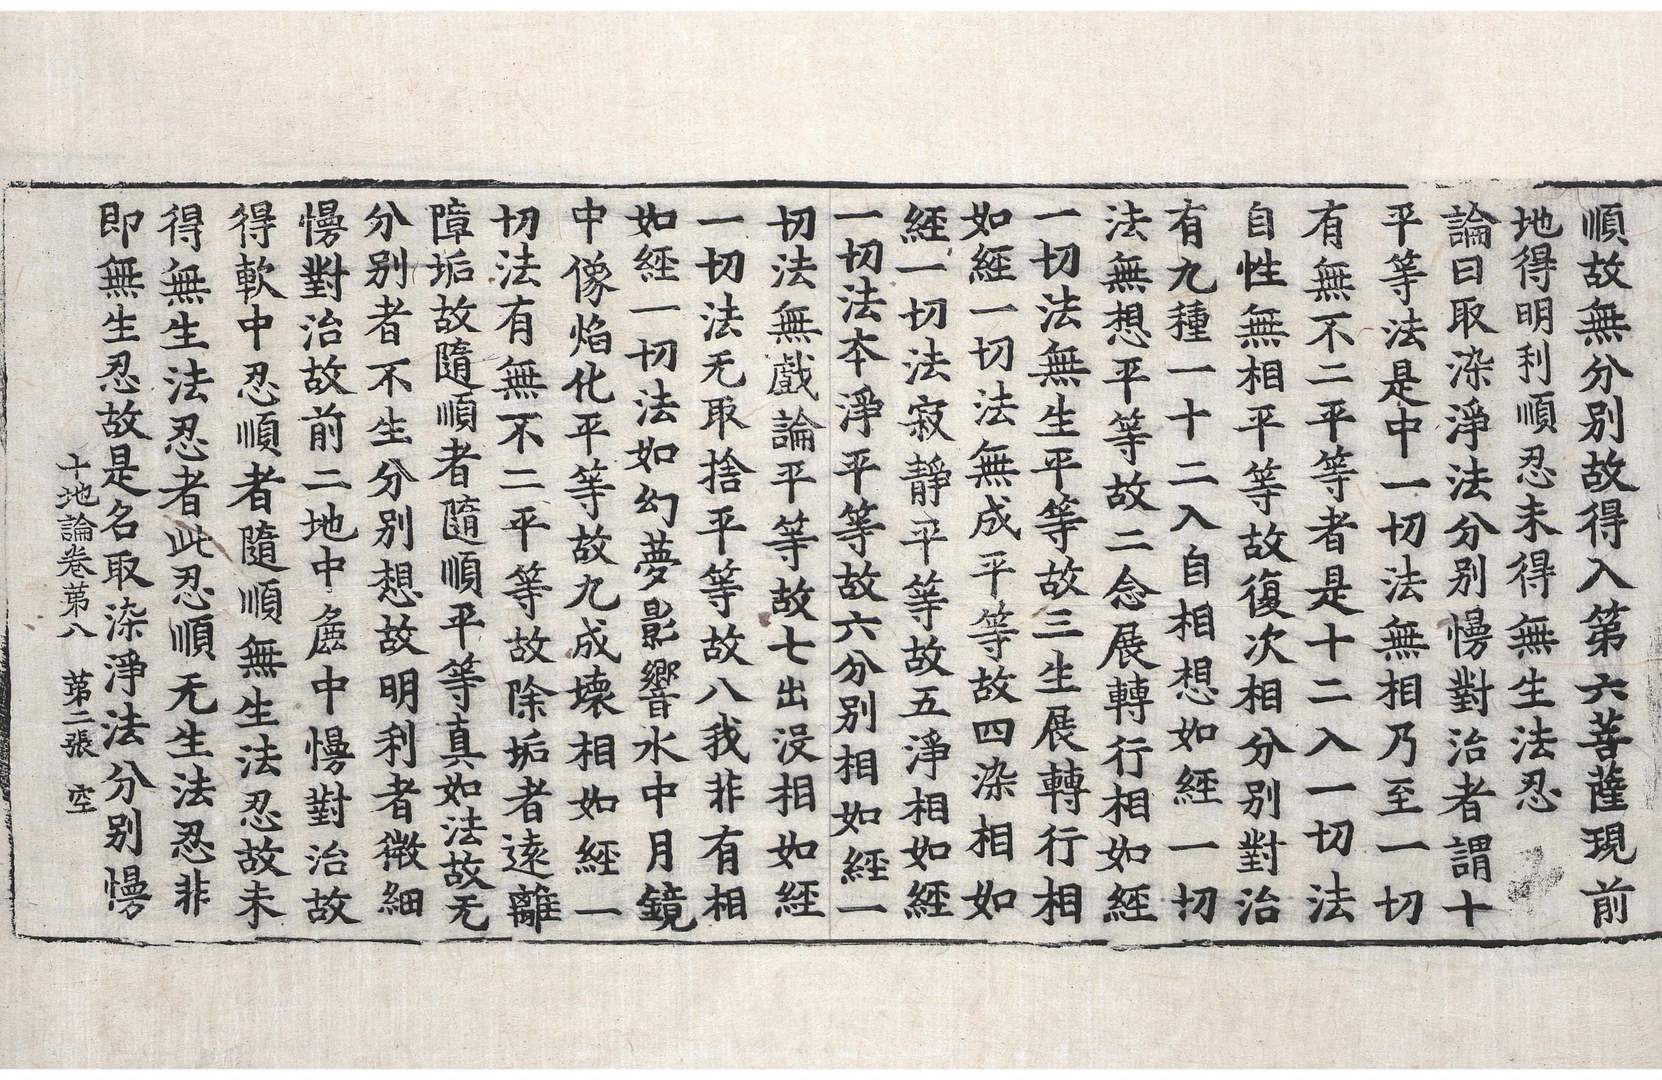 順故無分別故得入第六菩薩現前
地得明利順忍未得無生法忍
論曰取染淨法分別慢對治者謂十
平等法是中一切法無相乃至一切
有無不二平等者是十二入一切法
自性無相平等故復次相分別對治
有九種一十二入自相想如經一切
法無想平等故二念展轉行相如經
一切法無生平等故三生展轉行相
如經一切法無成平等故四染相如
經一切法寂靜平等故五淨相如經
一切法本淨平等故六分別相如經一
切法無戲論平等故七出沒相如經
一切法无取捨平等故八我非有相
如經一切法如幻夢影響水中月鏡
中像焰化平等故九成壞相如經一
切法有無不二平等故除垢者遠離
障垢故隨順者隨順平等真如法故无
分別者不生分別想故明利者微細
慢對治故前二地中麁中慢對治故
得軟中忍順者隨順無生法忍故未
得無生法忍者此忍順无生法忍非
即無生忍故是名取染淨法分別慢
十地論卷第八 第二張 空